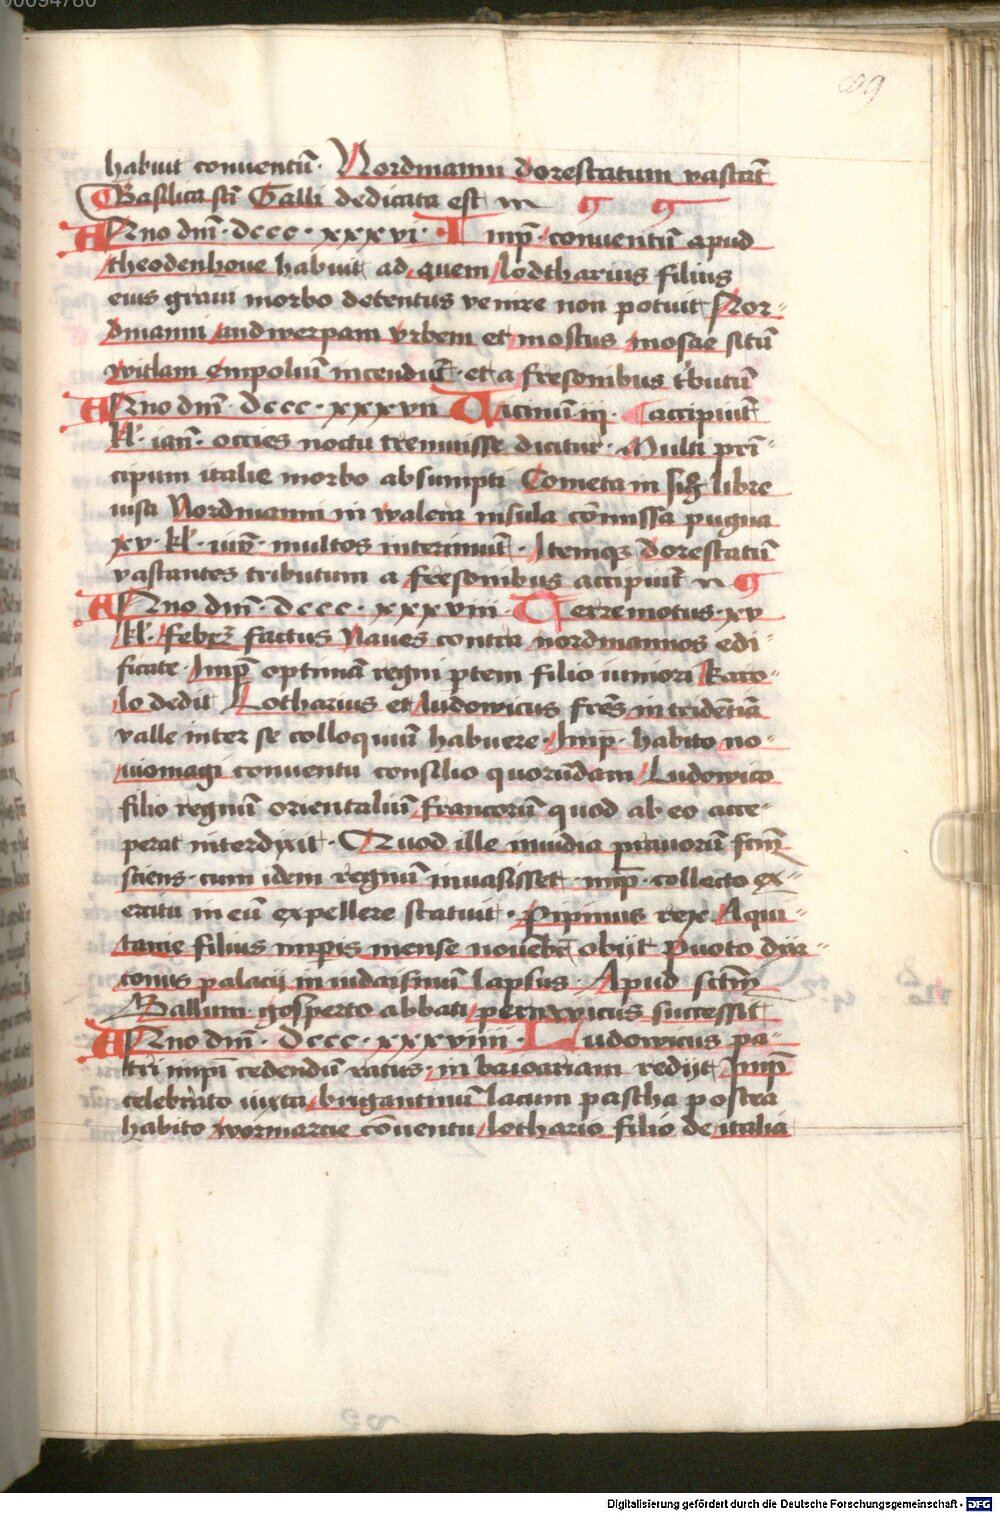 00094780
89
habuit conventū · Nordmanni dorestatum vastāt
Basilica sc̄i Galli dedicata est
Anno dn̄i · dccc · xxxvi · Imp̄ · conventū apud
theodenhove habuit ad quem lodtharius filius
eius gravi morbo detentus venire non potuit Nor-
dmanni andwerpam urbem et mostus mosae sitū
witlam empoliū incendūt · et a fresonibus t'butū
Anno dn̄i · dccc · xxxvii Vicinū iij · accipiūt
kl' · ian̄ · octies noctu tremuisse dicitur · Multi prī-
cipum italie morbo absumpti Cometa in libre
visa Nordmanni in walcra insula cōmissa pugna
xv · kl' · iun̄ · multos interimūt · Itemqꝫ dorestatū
vastantes tributum a fresonibus accipiūt
Anno dn̄i · dccc · xxxviii · Terremotus · xv
kl' · febrꝝ factus Naves contra nordmannos edi-
ficate · Imp̄ optimā regni ptem filio iuniori karo-
lo dedit Lotharius et ludowicus frēs in tridētīā
valle inter se colloquiū habuere · Imp̄ · habito no-
viomagi conventu consilio quorūdam Ludowico
filio regnū orientaliū francorū quod ab eo acce-
perat interdixit · Quod ille invidia pravorū fcm̄
sciens · cum idem regnū invasisset · imp̄ · collecto ex-
ercitu in eū expellere statuit · Pipinus rex Aqui-
tanie filius impis mense novēbr̄ obijt Puoto dyr-
tonus palacij in lapsus · Apud sctm̄
Gallum gosperto abbati pernwicus successit
Anno dn̄i · Dccc · xxxviiii · Ludowicus pa-
tri impī cedendū ratus · in baioariam redijt Imp̄
celebrato iuxta brigantinū lacum pascha postea
habito wormacie cōventu lothario filio de italia
Digitalisierung gefördert durch die Deutsche Forschungsgemeinschaft - DFG